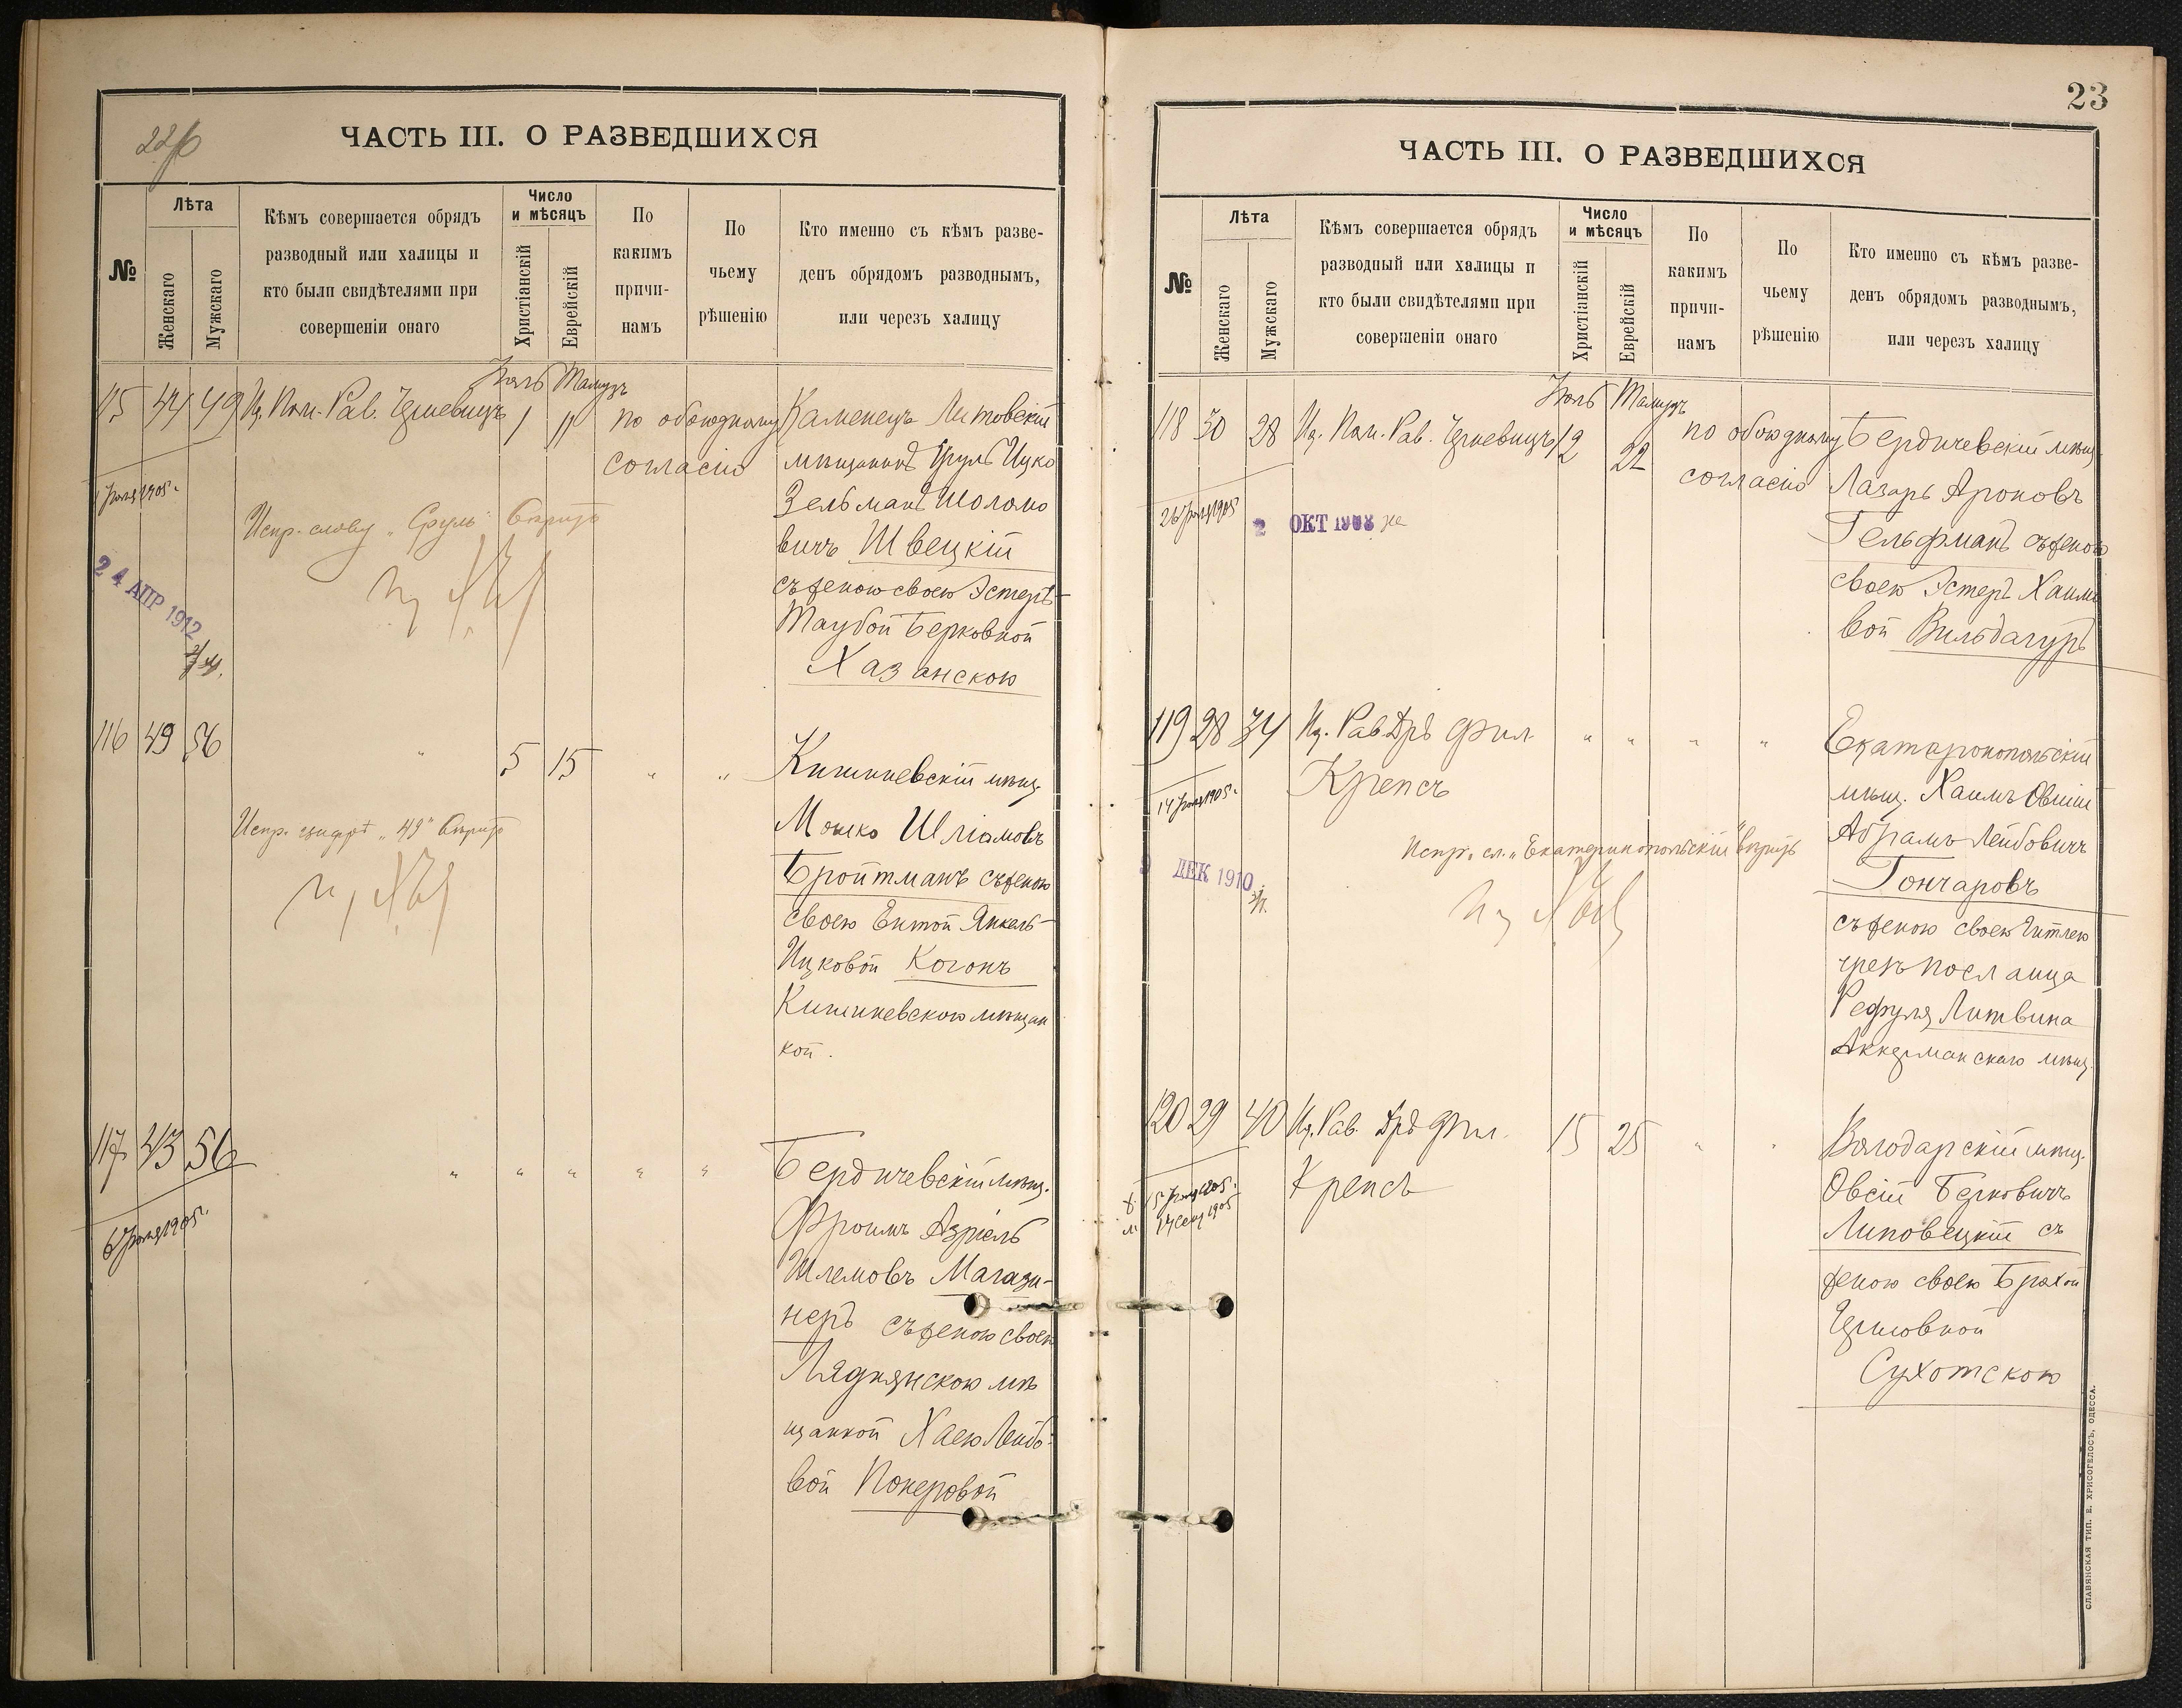 22б
ЧАСТЬ III. О РАЗВЕДШИХСЯ
№
Лѣта
Женскаго
Мужскаго
Кѣмъ совершается обрядъ
разводный или халицы и
кто были свидѣтелями при
совершеніи онаго
Число
и мѣсяцъ
Христіанскій
Еврейскій
По
какимъ
причи-
намъ
По
чьему
рѣшенію
Кто именно съ кѣмъ разве-
денъ обрядомъ разводнымъ,
или черезъ халицу
Іюль Тамузъ
115 44 49 Ис. Пом. Рав. 1 11 по обоюдному
согласію
Каменецъ Литовскій
мѣщанинъ Сруль Ицко
Зельманъ Шоломо
вичъ Швецкій
съ женою своею Эстеръ-
Таубой Берковной
Хазанскою
1 Іюля 1905 г.
Испр. слову „Сруль" вѣрить
24 АПР 1912
116 49 56 " 5 15 " "
Кишиневскій мѣщ.
Мошко Шліомовъ
Бройтманъ съ женою
своею Ентой Янкель-
Ицковой Когонъ
Кишиневскою мѣщан
кой.
Испр. цифрѣ „49" вѣрить
117 43 56 " " " " "
Бердичевскій мѣщ.
Фроимъ Азріель
Шлемовъ Магази-
неръ съ женою своею
Ляднянскою мѣ
щанкой Хаею Лейбо-
вой Покеровой
6 Іюля 1905 г.
23
ЧАСТЬ III. О РАЗВЕДШИХСЯ
№
Лѣта
Женскаго
Мужскаго
Кѣмъ совершается обрядъ
разводный или халицы и
кто были свидѣтелями при
совершеніи онаго
Число
и мѣсяцъ
Христіанскій
Еврейскій
По
какимъ
причи-
намъ
По
чьему
рѣшенію
Кто именно съ кѣмъ разве-
денъ обрядомъ разводнымъ,
или черезъ халицу
Іюль Тамузъ
118 30 28 Ис. Пом. Рав. 12 22 по обоюдному
согласію
Бердичевскій мѣщ.
Лазарь Ароновъ
Гельфманъ съ женою
своею Эстеръ Хаимо
вой Вильдагуръ
1905
2 ОКТ 1908
119 28 34 Ис. Рав. Дръ Фил. " " " "
Крепсъ
Екатеринопольскій
мѣщ. Хаимъ Овшій
Абрамъ Лейбовичъ
Гончаровъ
съ женою своею Гитлею
чрезъ посланца
Рефуля Литвина
Аккерманскаго мѣщ.
14 Іюля 1905 г.
Испр. сл. „Екатеринопольскій" вѣрить
9 ДЕК 1910
120 29 40 Ис. Рав. Дръ Фил. 15 25 " "
Крепсъ
Володарскій мѣщ.
Овсій Берковичъ
Липовецкій съ
женою своею Брахой
Сухотскою
ж. 15 Іюля 1905 г.
м. 1905
СЛАВЯНСКАЯ ТИП. Е. ХРИСОГЕЛОСЪ, ОДЕССА.